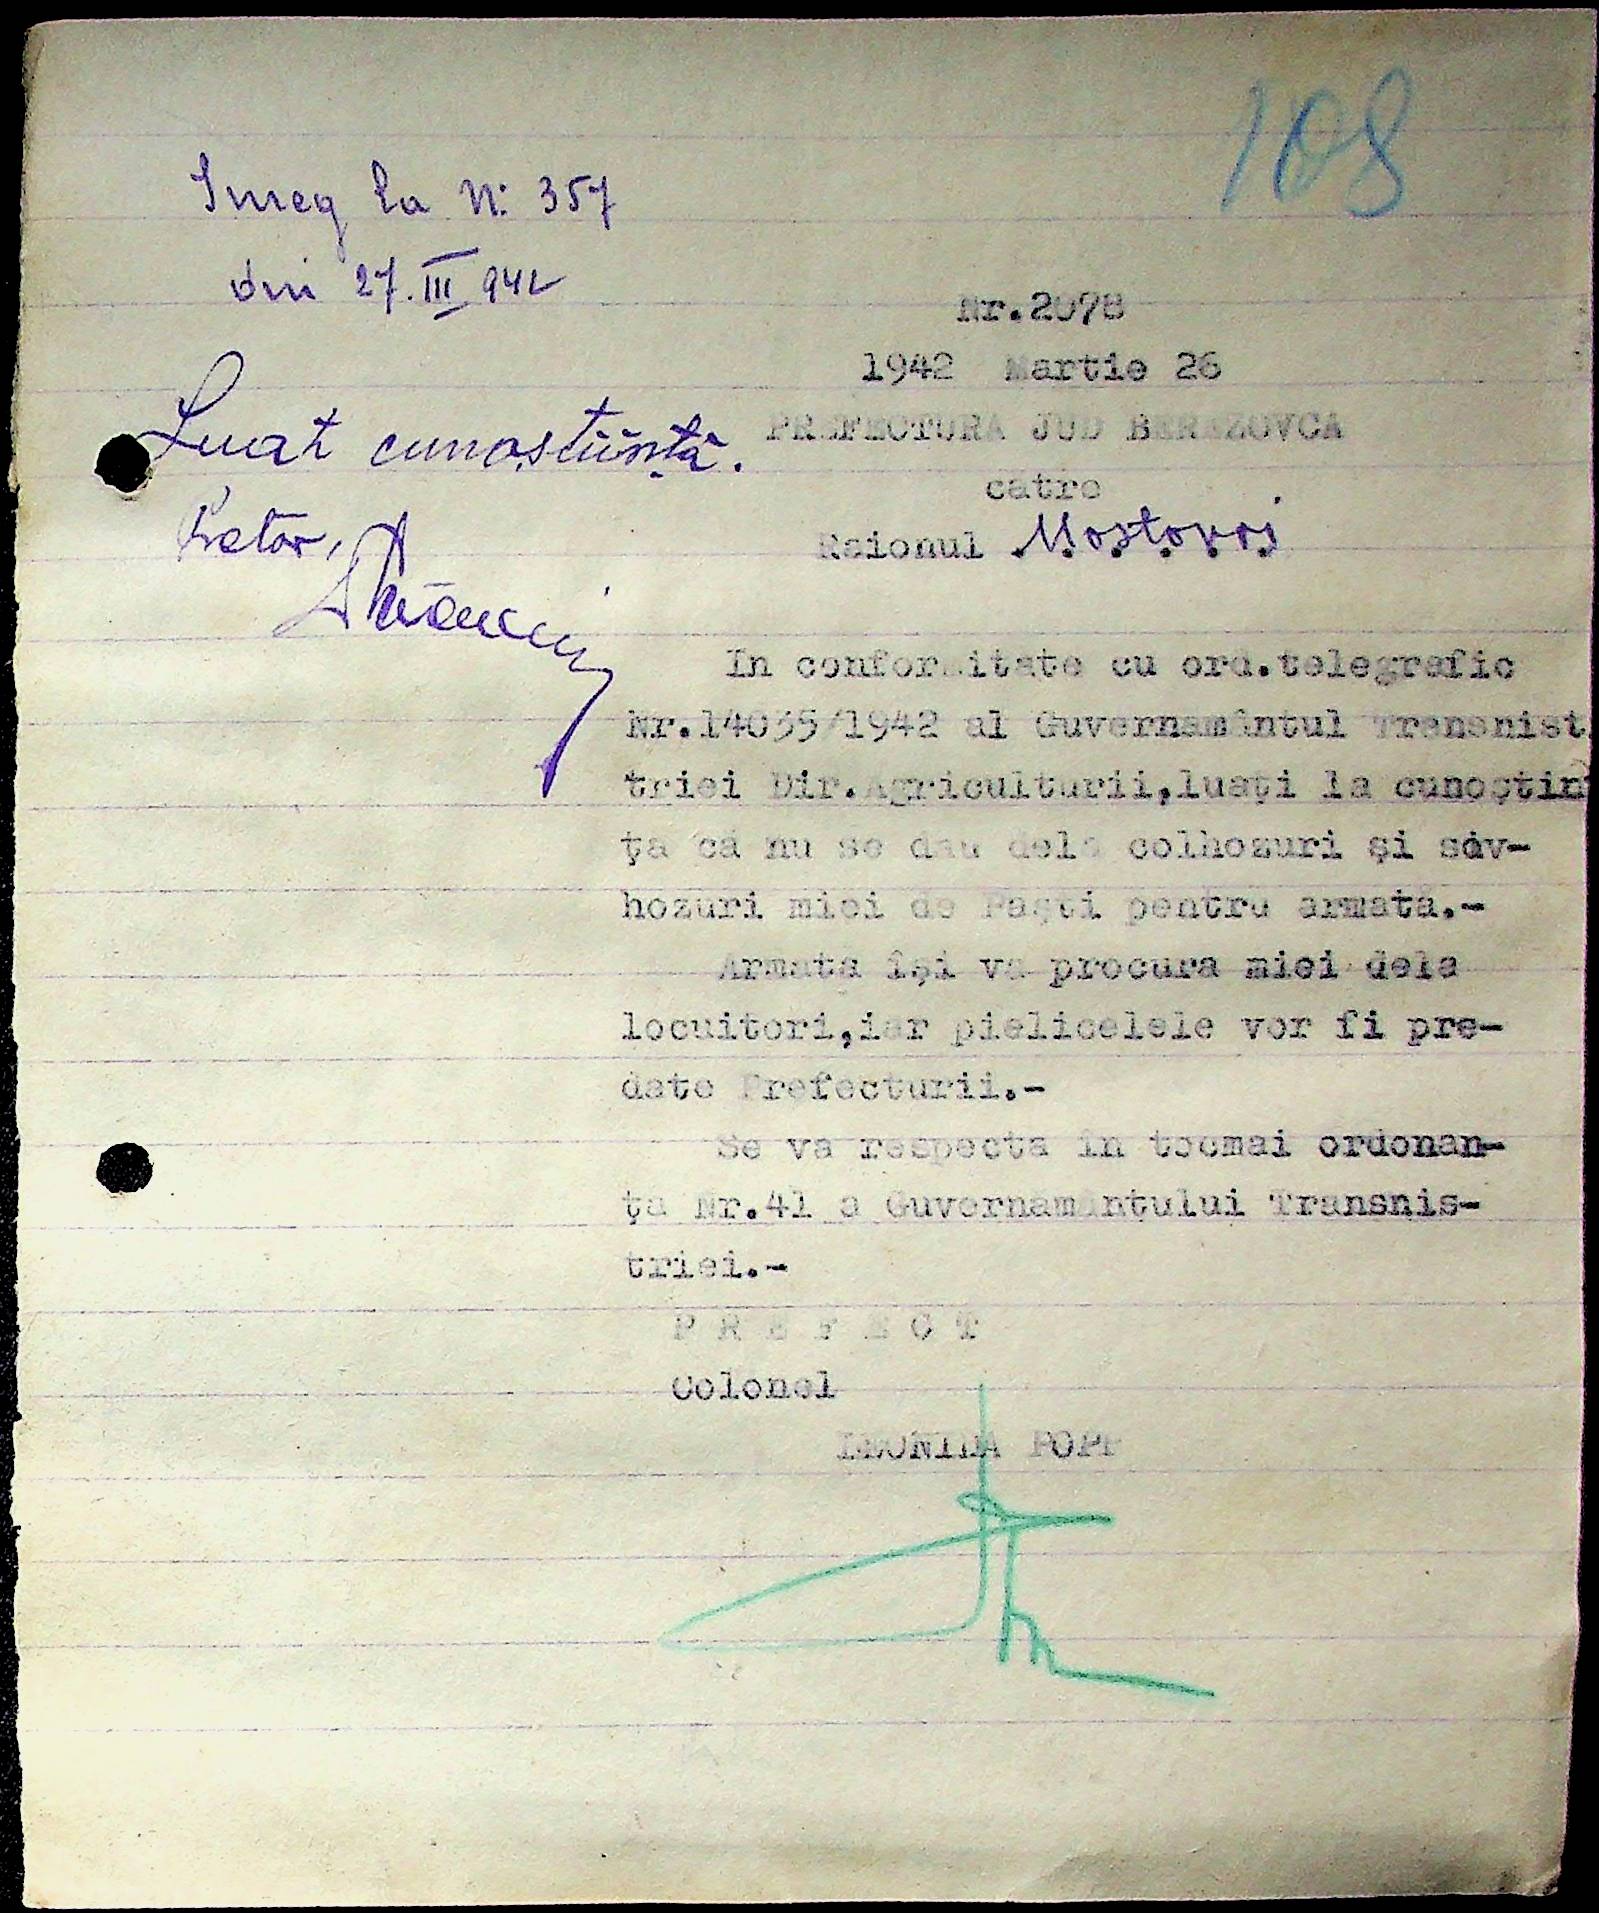 108
Inreg la N: 357
din 27.III 942
Nr.2078
1942 Martie 26
Luat cunostiinta.
PREFECTURA JUD BEREZOVCA
catre
Pretor,
Raionul Mostovoi
In conformitate cu ord.telegrafic
Nr.14035/1942 al Guvernamântul Transnist
triei Dir.Agriculturii,luaţi la cunoştin
ţa că nu se dau dela colhozuri şi sov-
hozuri miei de Paşti pentru armată.-
Armata îşi va procura miei dela
locuitori,iar pielicelele vor fi pre-
date Prefecturii.-
Se va respecta în tocmai ordonan-
ţa Nr.41 a Guvernamânţului Transnis-
triei.-
P R E F E C T
Colonel
LEONIDA POPP